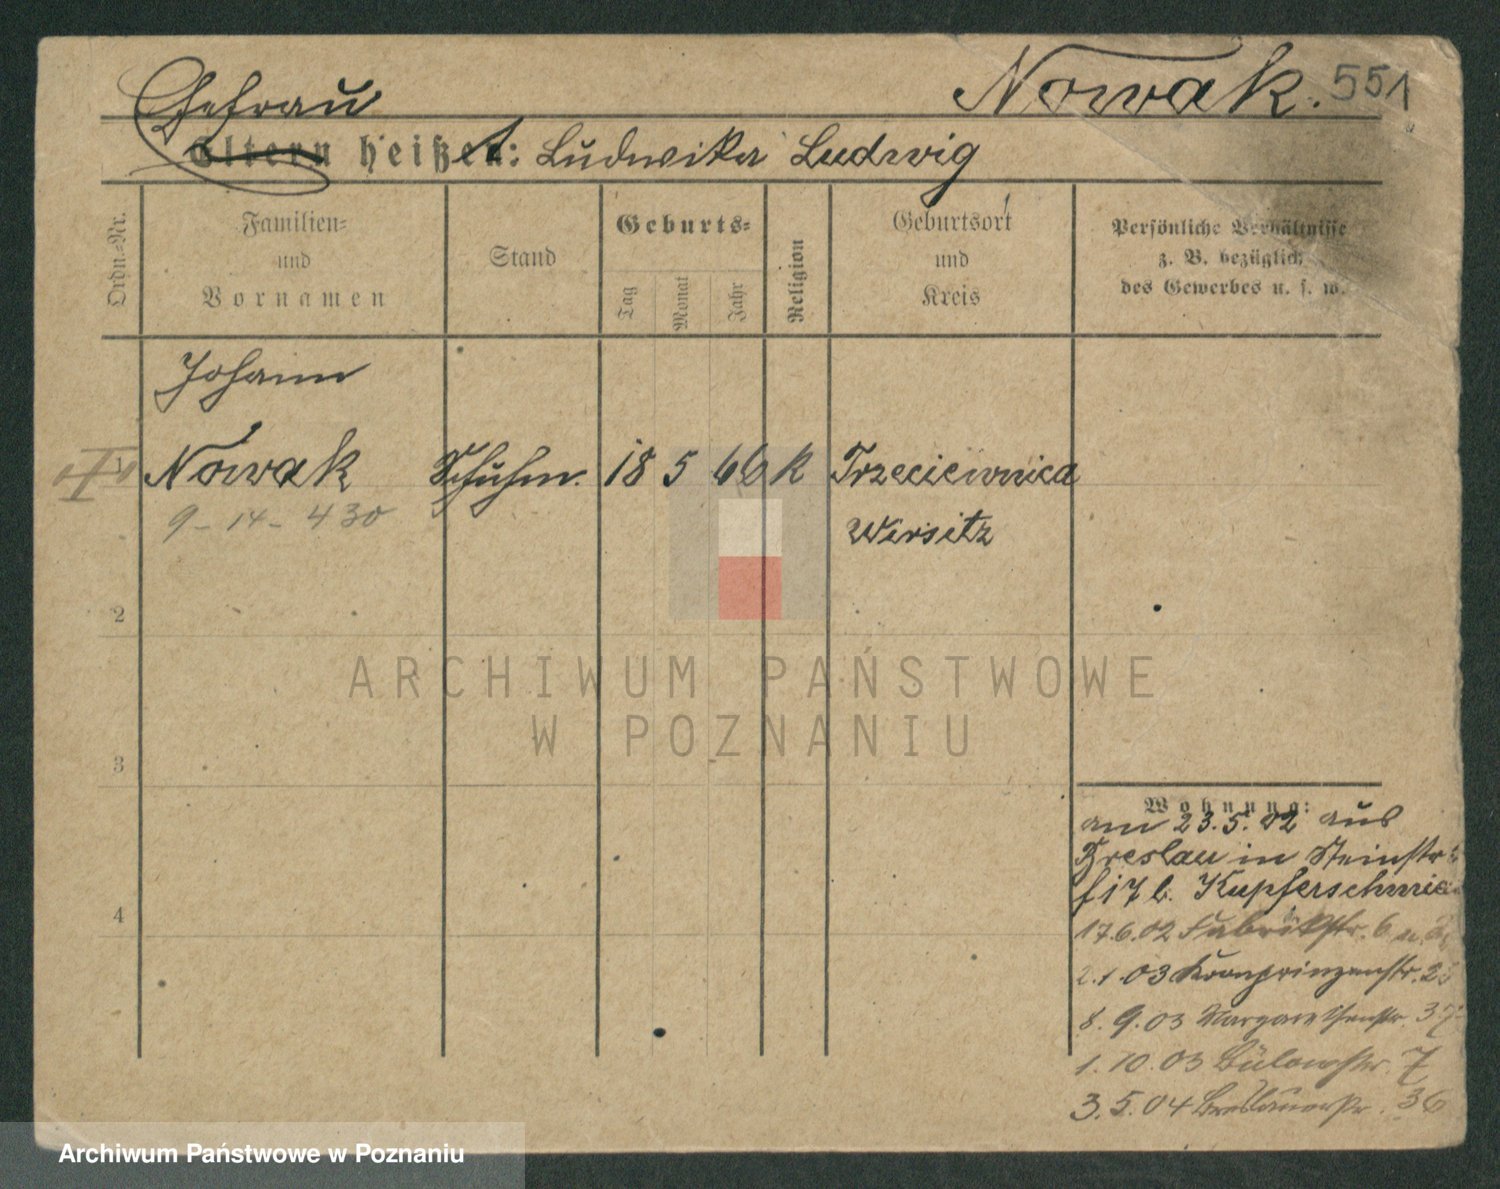 Nowak. 551
Ehefrau
Eltern heißen: Ludwika Ludwig
Ordn.-Nr.
Familien-
und
Vornamen
Stand
Geburts-
Tag
Monat
Jahr
Religion
Geburtsort
und
Kreis
Persönliche Verhältnisse
z. B. bezüglich
des Gewerbes u. s. w.
Johann
Nowak Schuhm. 18 5 66 k Trzeciewnica
9-14-430
Wirsitz
2
3
4
ARCHIWUM PAŃSTWOWE
W POZNANIU
Wohnung:
am 23.5.02 aus
Breslau in Steinstr.
17 b. Kupferschmied
17.6.02 Fabrikstr. 6
2.1.03 Kronprinzenstr.
8.9.03 Margarethenstr. 37
1.10.03 Bülowstr. 7
3.5.04 Breslauerstr. 36
Archiwum Państwowe w Poznaniu